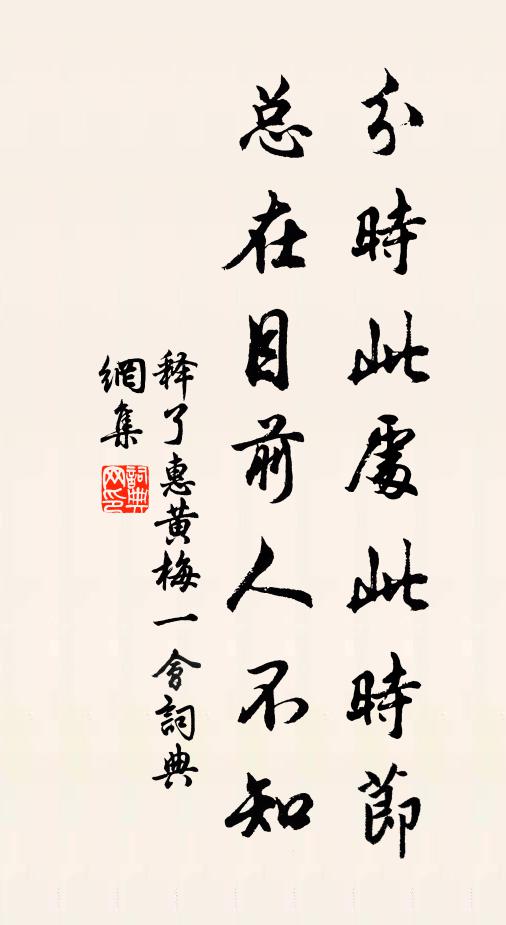 分時此處此時節
总在目前人不知
释了惠黄梅一會詞典
網集
詞典網印